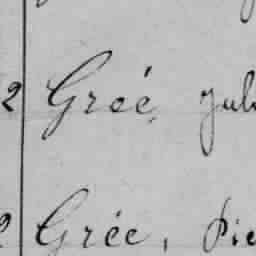 2 Greé, Jul
Grée, Pie